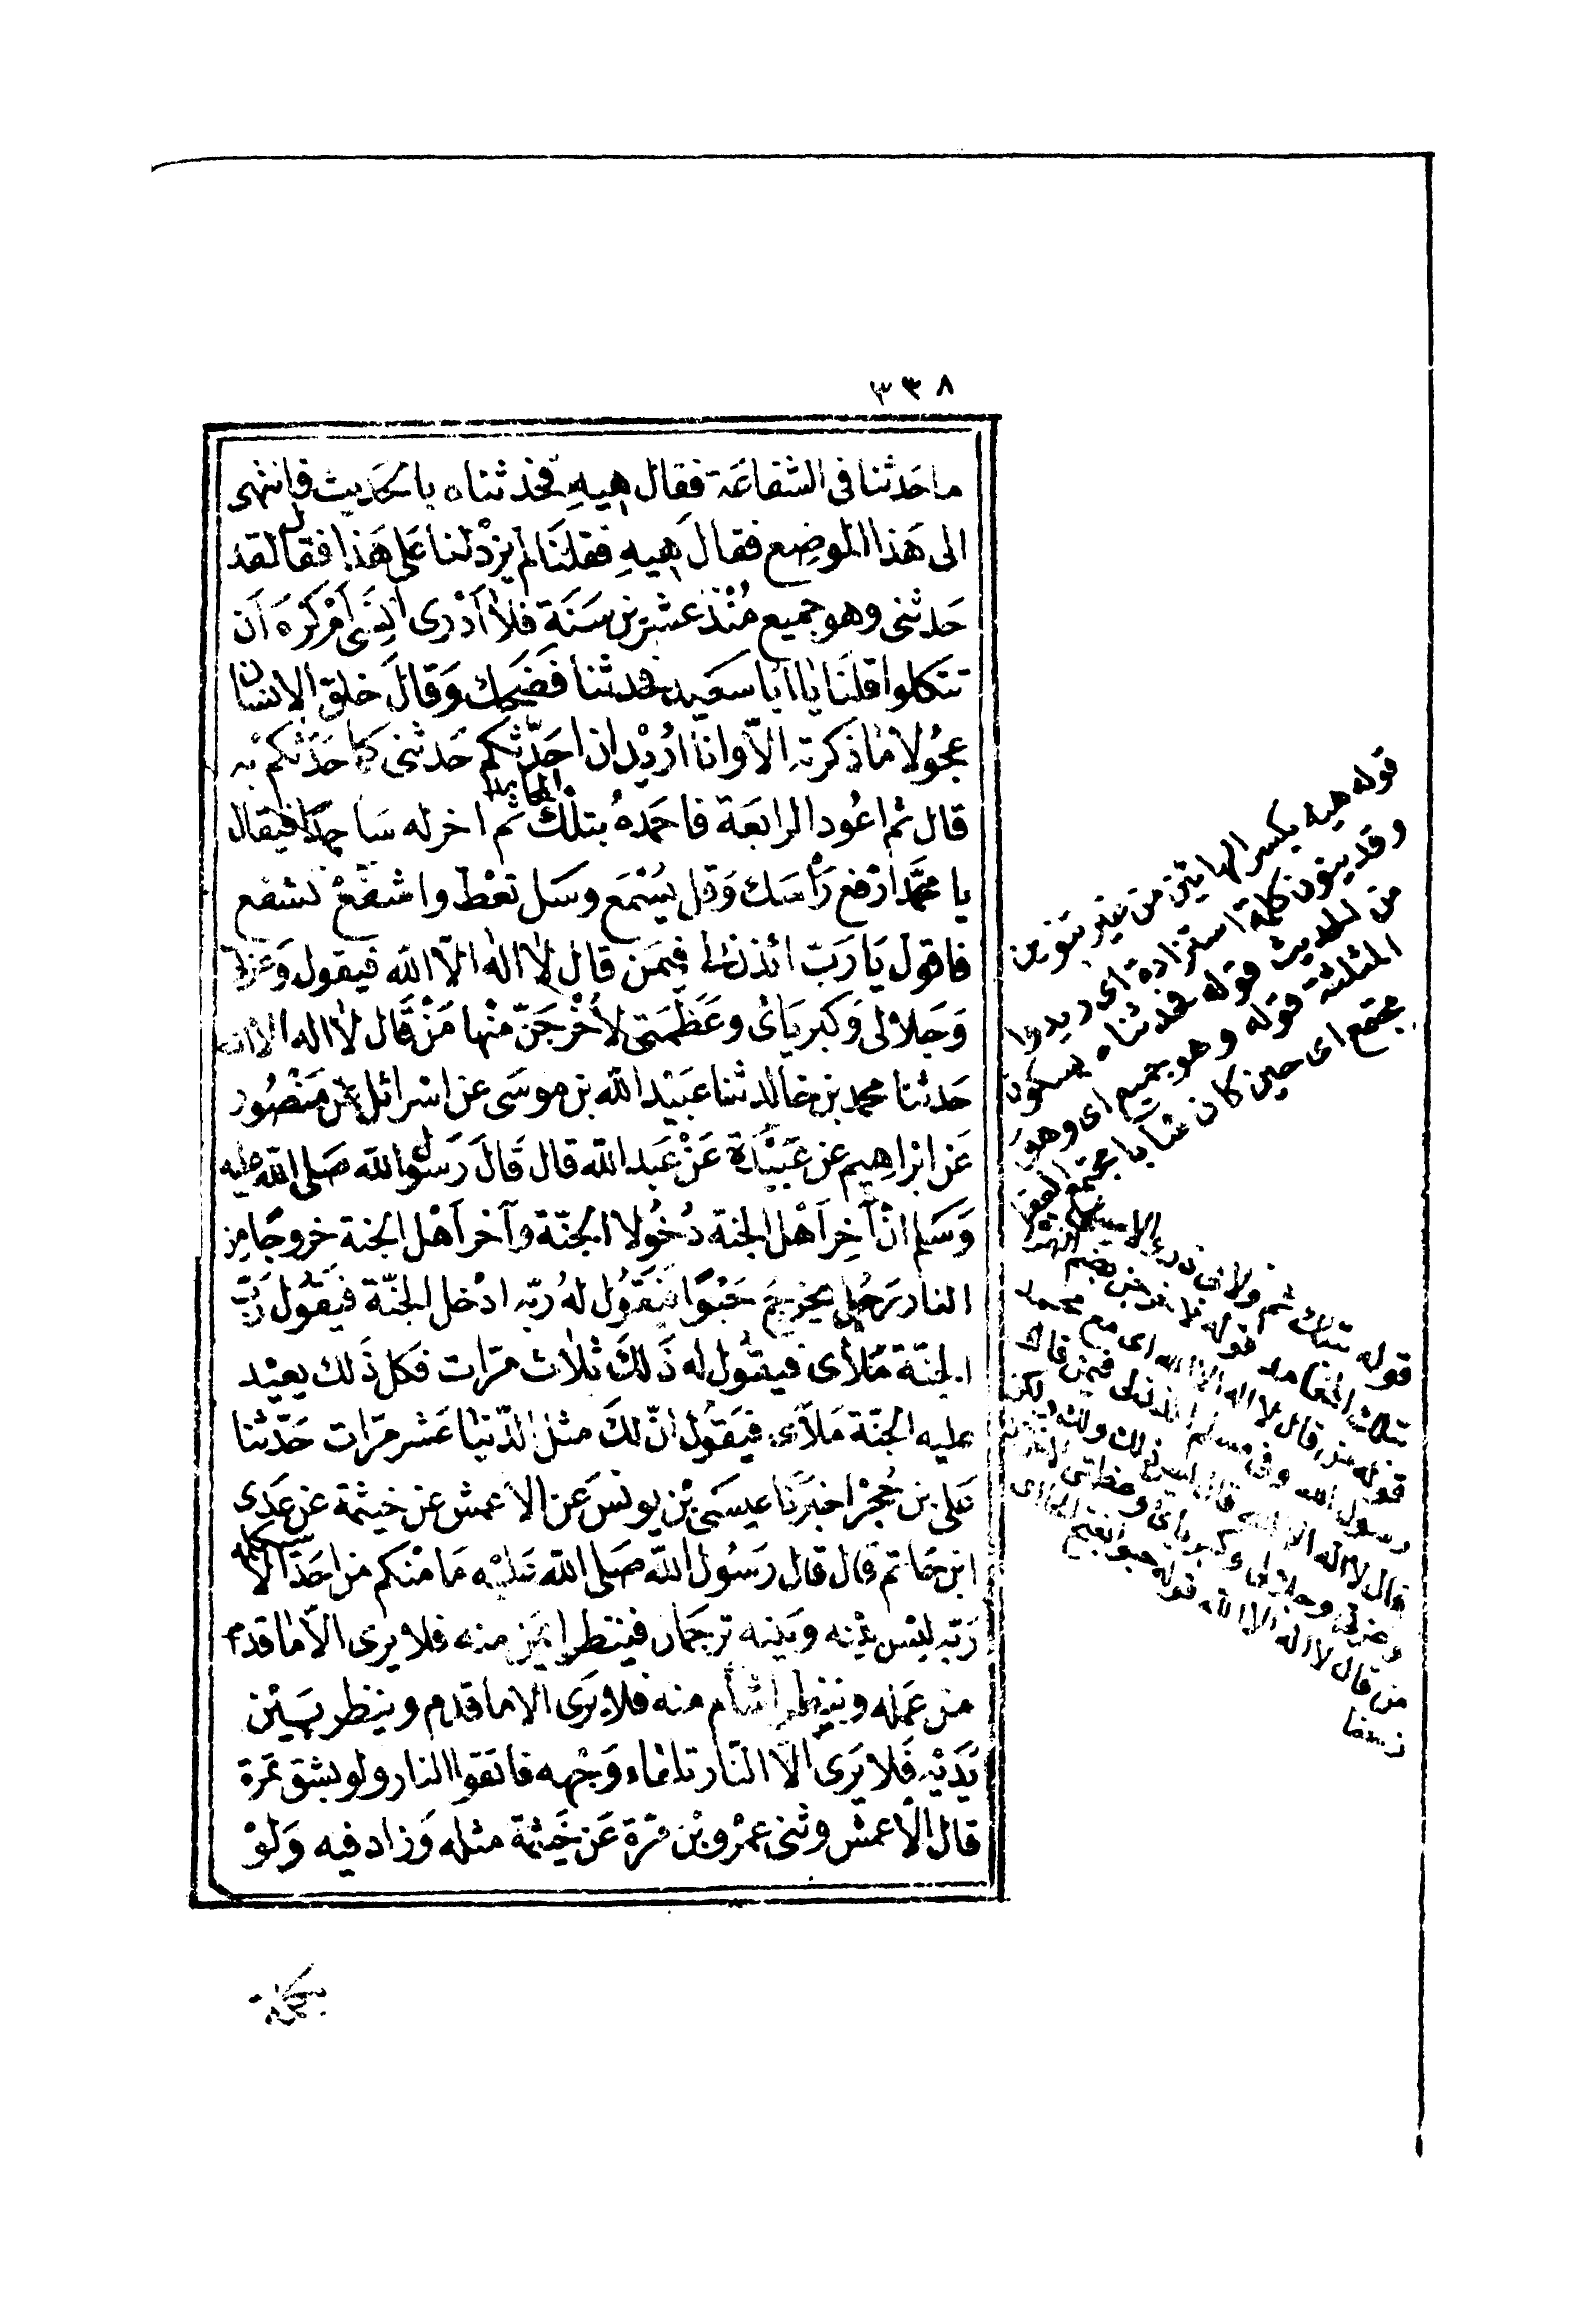 ٣٣٨
ما حَدثنا فى الشفاعَة فقال هِيهِ فحدثناه بالحَديث فانتهى
الى هَذا الموضِع فقالَ هِيهِ فقلنَا لم يزدْ لنا عَلى هَذا فقال لقد
حَدثنى وهو جميع مُنْذ عشرين سَنَة فلا أدْرى انسى أمْ كَرَه أن
تتكلوا قلنَا يا ابا سَعيد فحدثنا فضَحِك وَقالَ خلق الانسان
عجُولا ما ذكرته الاّ وانا اريْد ان احَدّثكم حَدثنى كما حَدّثكم به
قال ثم اعُود الرابعَة فاحمَدهُ بتلْك المحامد ثم اخر له سَاجدًا فيقال
يا محمَّد ارْفع رَأسَك وَقل يُسْمَع وسَل تعْط واشفَعْ تشفع
فاقول يَا رَبّ ائذن لى فيمَن قال لا اله الاّ الله فيقول وَعزتى
وَجَلالى وَكبريَائى وعَظَمَتى لأخْرجَنّ منْها مَنْ قَال لا اله الا الله
حَدثنا محمد بن خالد ثنا عبَيْد الله بن موسَى عن اسْرائل عن مَنْصُور
عَن ابْراهِيم عن عَبيْدَة عَنْ عَبد الله قال قَالَ رَسُول الله صَلى الله عليه
وَسَلم انّ آخِر اَهْل الجنة دُخُولا الجنّة وآخر اَهْل الجنة خروجًا من
النار رَجُل يخرج حَبْوًا فَيَقُول لهُ رَبّه ادْخل الجنّة فيَقُول رَبّ
الجنّة مَلأى فيقُول له ذَلكَ ثلاث مرّات فكل ذَلك يعيْد
عليه الجنّة مَلأى فيَقُول انّ لكَ مثل الدّنيَا عَشر مرّات حَدّثنا
عَلى بن حُجْر اخبَرنَا عيسَى بْن يونس عَن الاعمش عن خيثمة عن عَدى
ابن حَاتم قال قال رَسُول الله صَلى الله عَليْه مَا منْكم من احَد الاّ سيكلمه
رَبّه ليْس بَيْنه وبَينه ترجمَان فينظر ايمن منه فلا يرى الاّ ما قدم
من عَمَله وينظر اشأم منه فلا يرَى الا ما قدم وينظر بَيْن
يَدَيْه فَلا يَرَى الاّ النّار تلقاء وَجْهه فاتقوا النار ولو بشق تمرة
قال الاعمش وثنى عمْرو بْن مرّة عَن خَيثمة مثله وَزاد فيه وَلوْ
بكلمة
قوله هيه بكسر الهائين من غير تنوين
وقد ينون كلمة استزادة اى زيدوا
من الحديث قوله فحدثناه بسكون
المثلثة قوله وهو جميع اى وهو
مجتمع اى حين كان شابا مجتمع العقل
قوله بتلك ثم ولابى ذر عن
بتلك المحامد قوله لاخرجن بضم الهمزة
قوله من قال لا اله الا الله اى مع محمد
رسول الله وفى مسلم ائذن لى فيمن قال
قال لا اله الا الله قال ليس ذلك لك ولكن
وعزتى وجلالى وكبريائى وعظمتى لاخرجن
من قال لا اله الا الله قوله حبوا بفتح الحا اى
زحفا